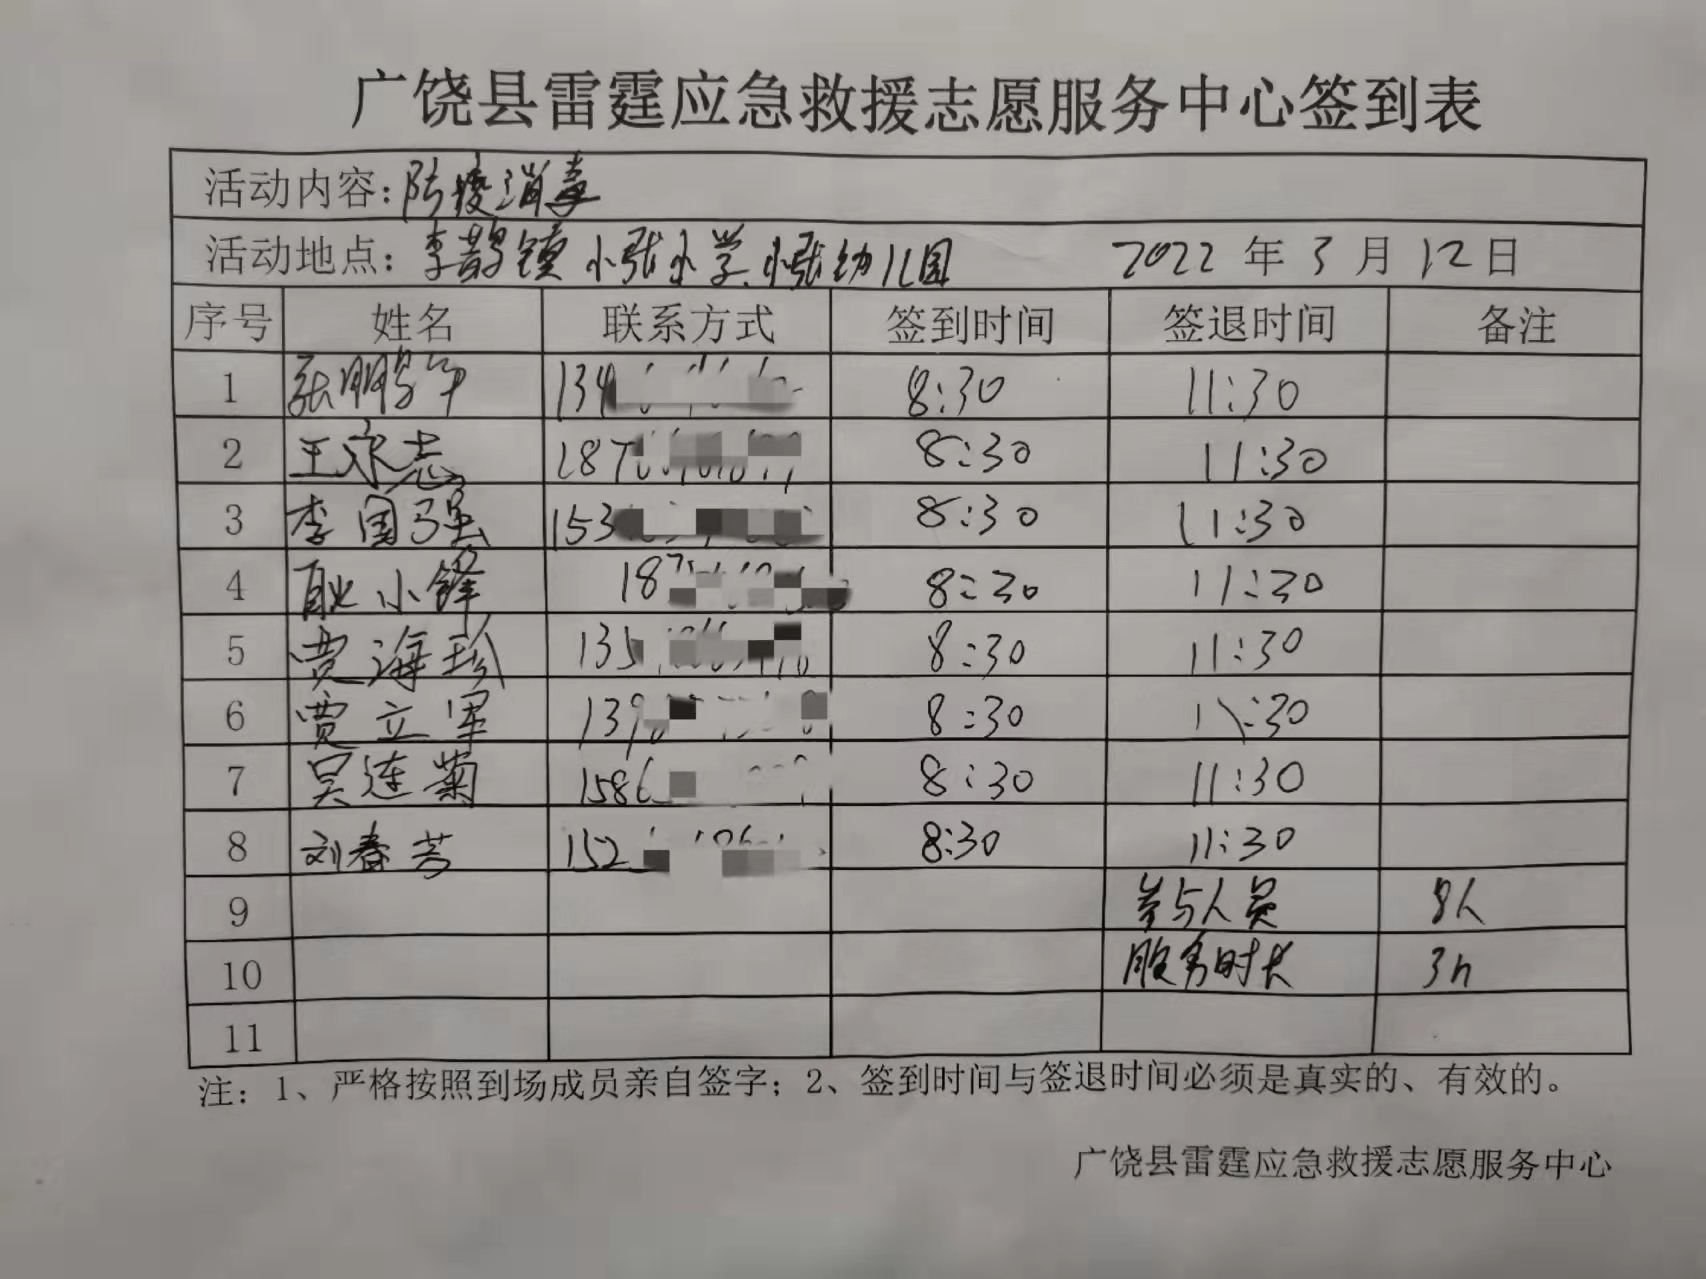 广饶县雷霆应急救援志愿服务中心签到表
活动内容：防疫消毒
活动地点：李鹊镇小张小学、小张幼儿园 2022年3月12日
序号 姓名 联系方式 签到时间 签退时间 备注
1 张鹏 134 8:30 11:30
2 王永志 187 8:30 11:30
3 李国强 153 8:30 11:30
4 耿小锋 187 8:30 11:30
5 贾海珍 135 8:30 11:30
6 贾立军 139 8:30 11:30
7 吴连菊 1586 8:30 11:30
8 刘春芳 152 8:30 11:30
9 参与人员 8人
10 服务时长 3h
11
注：1、严格按照到场成员亲自签字；2、签到时间与签退时间必须是真实的、有效的。
广饶县雷霆应急救援志愿服务中心